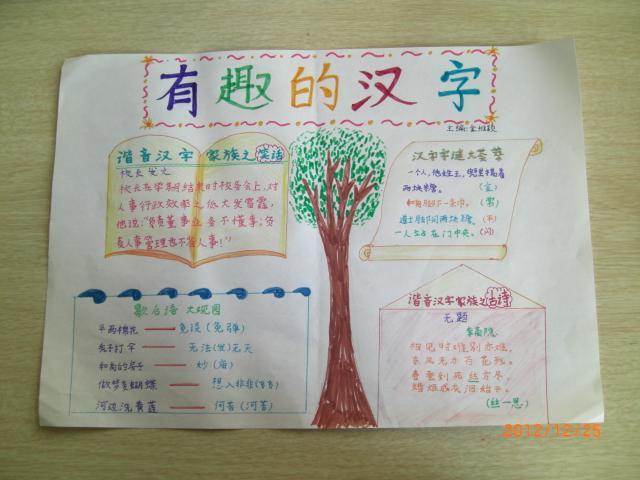 有趣的汉字
主编:金
谐音汉字家族之笑话
校长发火
校长在学期结束时校务会上,对
人事行政效率之低大发雷霆,
他说:“负责董事业务不懂事;负
责人事管理也不管人事!”
汉字字谜大荟萃
一个人,他姓王,兜里揣着
两块糖。(金)
道士腰间两块糖。(平)
一人站在门中央。(闪)
歇后语 大观园
免谈(免弹)
无法(发)无天
和尚的房子——妙(庙)
做梦变蝴蝶——想入非非(飞飞)
河边洗黄莲——何苦(河苦)
谐音汉字家族之古诗
无题
李商隐
相见时难别亦难,
东风无力百花残。
春蚕到死丝方尽,
蜡炬成灰泪始干。
(丝—思)
2012/12/25